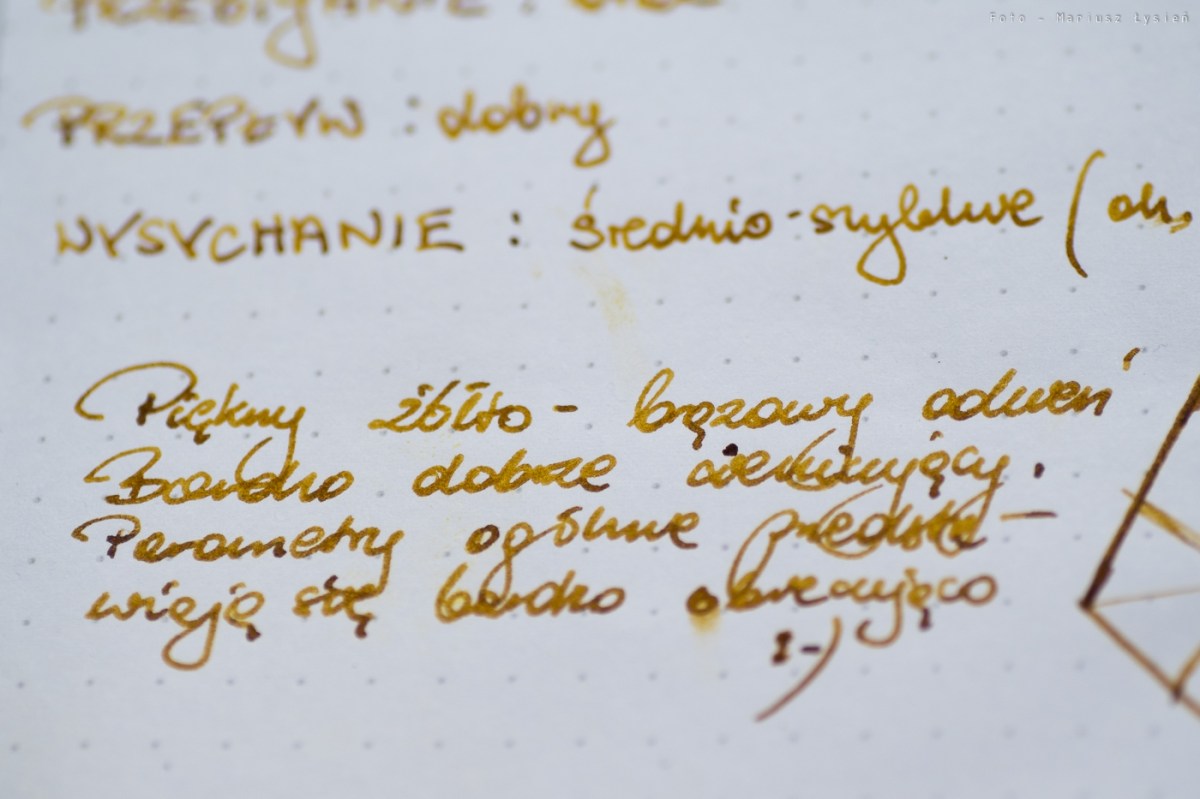 Foto - Mariusz Łysień
PRZEBIJANIE :
PRZEPŁYW : dobry
WYSYCHANIE : średnio-szybkie (ok,
Piękny żółto - brązowy odcień
Bardzo dobrze cieniujący.
Parametry ogólne przedsta-
wiają się bardzo obiecująco
:-)